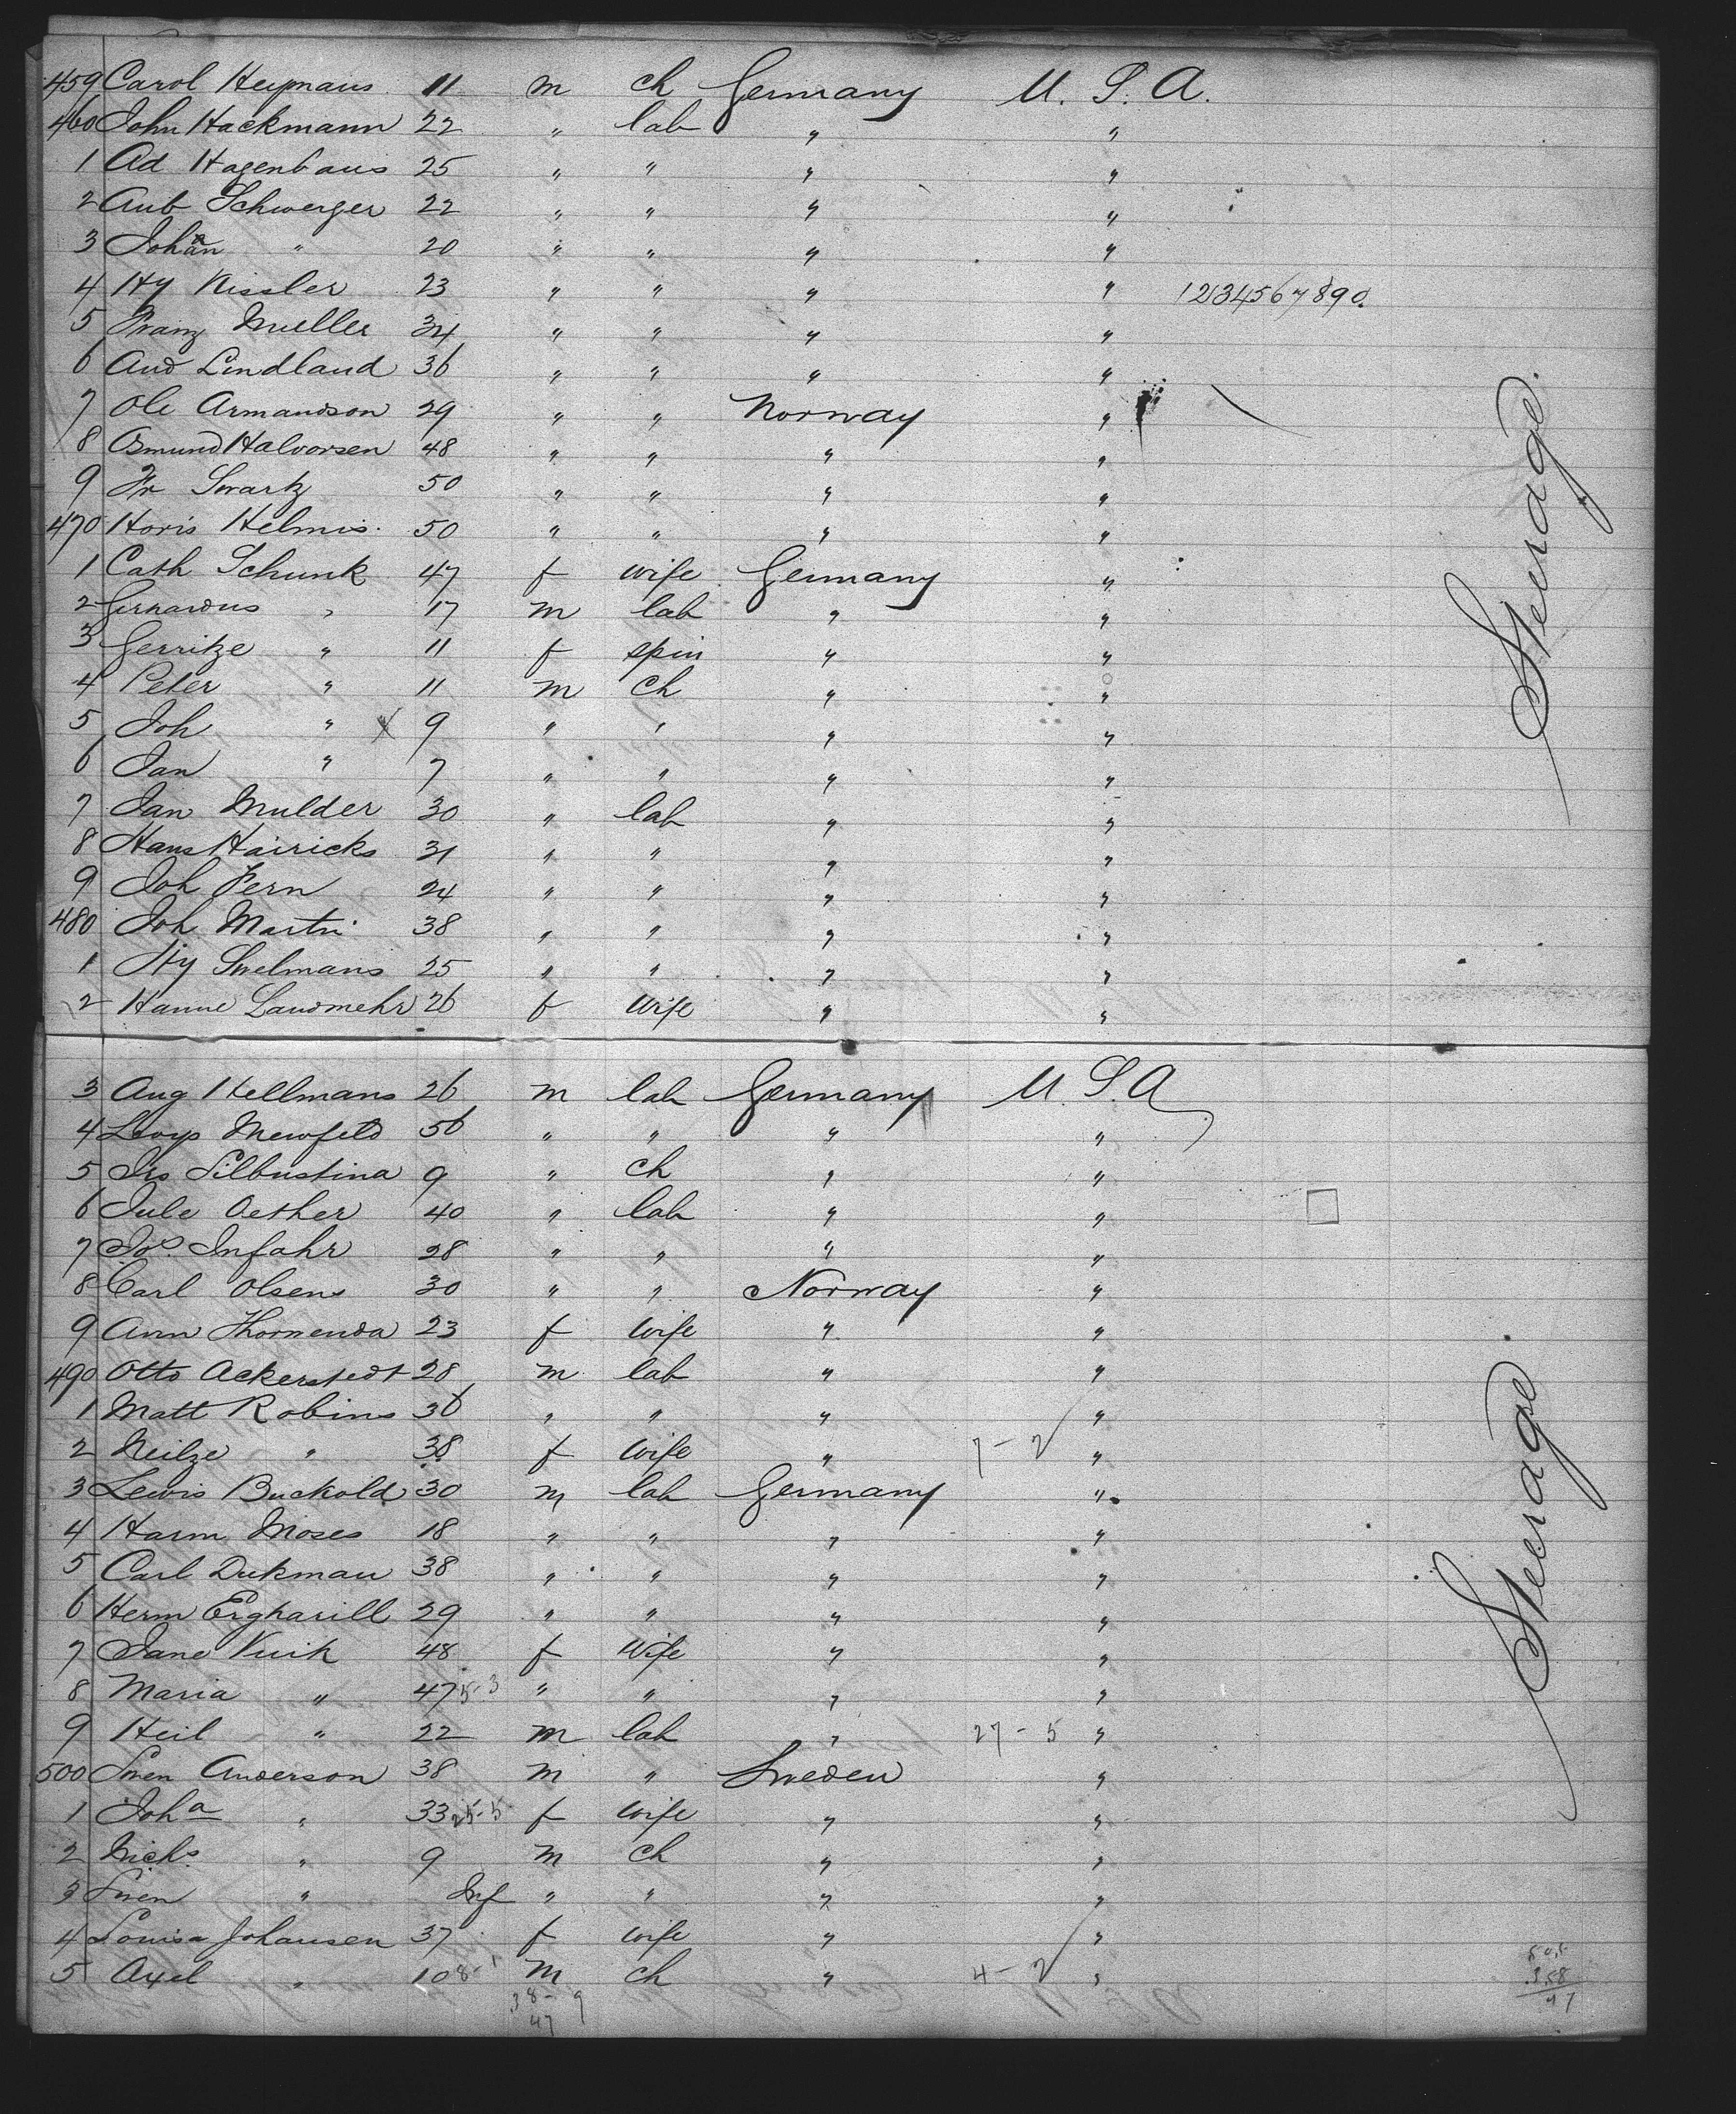 459 Carol Heymans 11 m ch Germany U. S. A.
460 John Hackmann 22 " lab " "
1 Ad Hagenbaus 25 " " " "
2 Aub Schwerger 22 " " " "
3 Johan " 20 " " " "
4 Hy Kissler 23 " " " " 1234567890.
5 Franz Mueller 34 " " " "
6 And Lindland 36 " " " "
7 Ole Armandson 29 " " Norway "
8 Osmund Halvorsen 48 " " " "
9 Fr Swartz 50 " " " "
470 Horis Helmis 50 " " " "
1 Cath Schunk 47 f wife Germany "
2 Gerhardus " 17 m lab " "
3 Gerritze " 11 f spin " "
4 Peter " 11 m ch " "
5 Joh " x 9 " " " "
6 Jan " 7 " " " "
7 Jan Mulder 30 " lab " "
8 Hans Hairicks 31 " " " "
9 Joh Fern 24 " " " "
480 Joh Martin 38 " " " "
1 Hy Smelmans 25 " " " "
2 Hanne Landmehr 26 f wife " "
Steerage.
3 Aug Hellmans 26 m lab Germany U. S. A
4 Mewfeld 56 " " " "
5 Silbustina 9 " ch " "
6 Jule Oether 40 " lab " "
7 Jos. Infahr 28 " " " "
8 Carl Olsens 30 " " Norway "
9 Ann Thornenda 23 f wife " "
490 Otto Ackerstedt 28 m lab " "
1 Matt Robins 36 " " " "
2 Neilze " 38 f wife " 7-2 "
3 Lewis Buckold 30 m lab Germany "
4 Harm Moses 18 " " " "
5 Carl Dukman 38 " " " "
6 Herm Ergharill 29 " " " "
7 Jane Vuik 48 f wife " "
8 Maria " 47 5-3 " " " "
9 Heil " 22 m lab " 27-5 "
500 Swen Anderson 38 m " Sweden "
1 Joha " 33 25-5 f wife " "
2 Nichs " 9 m ch " "
3 Swen " Inf " " " "
4 Louisa Johansen 37 f wife " "
5 Axel " 10 8-1 m ch " 4-2 "
38-9
47
Steerage.
505
458
47